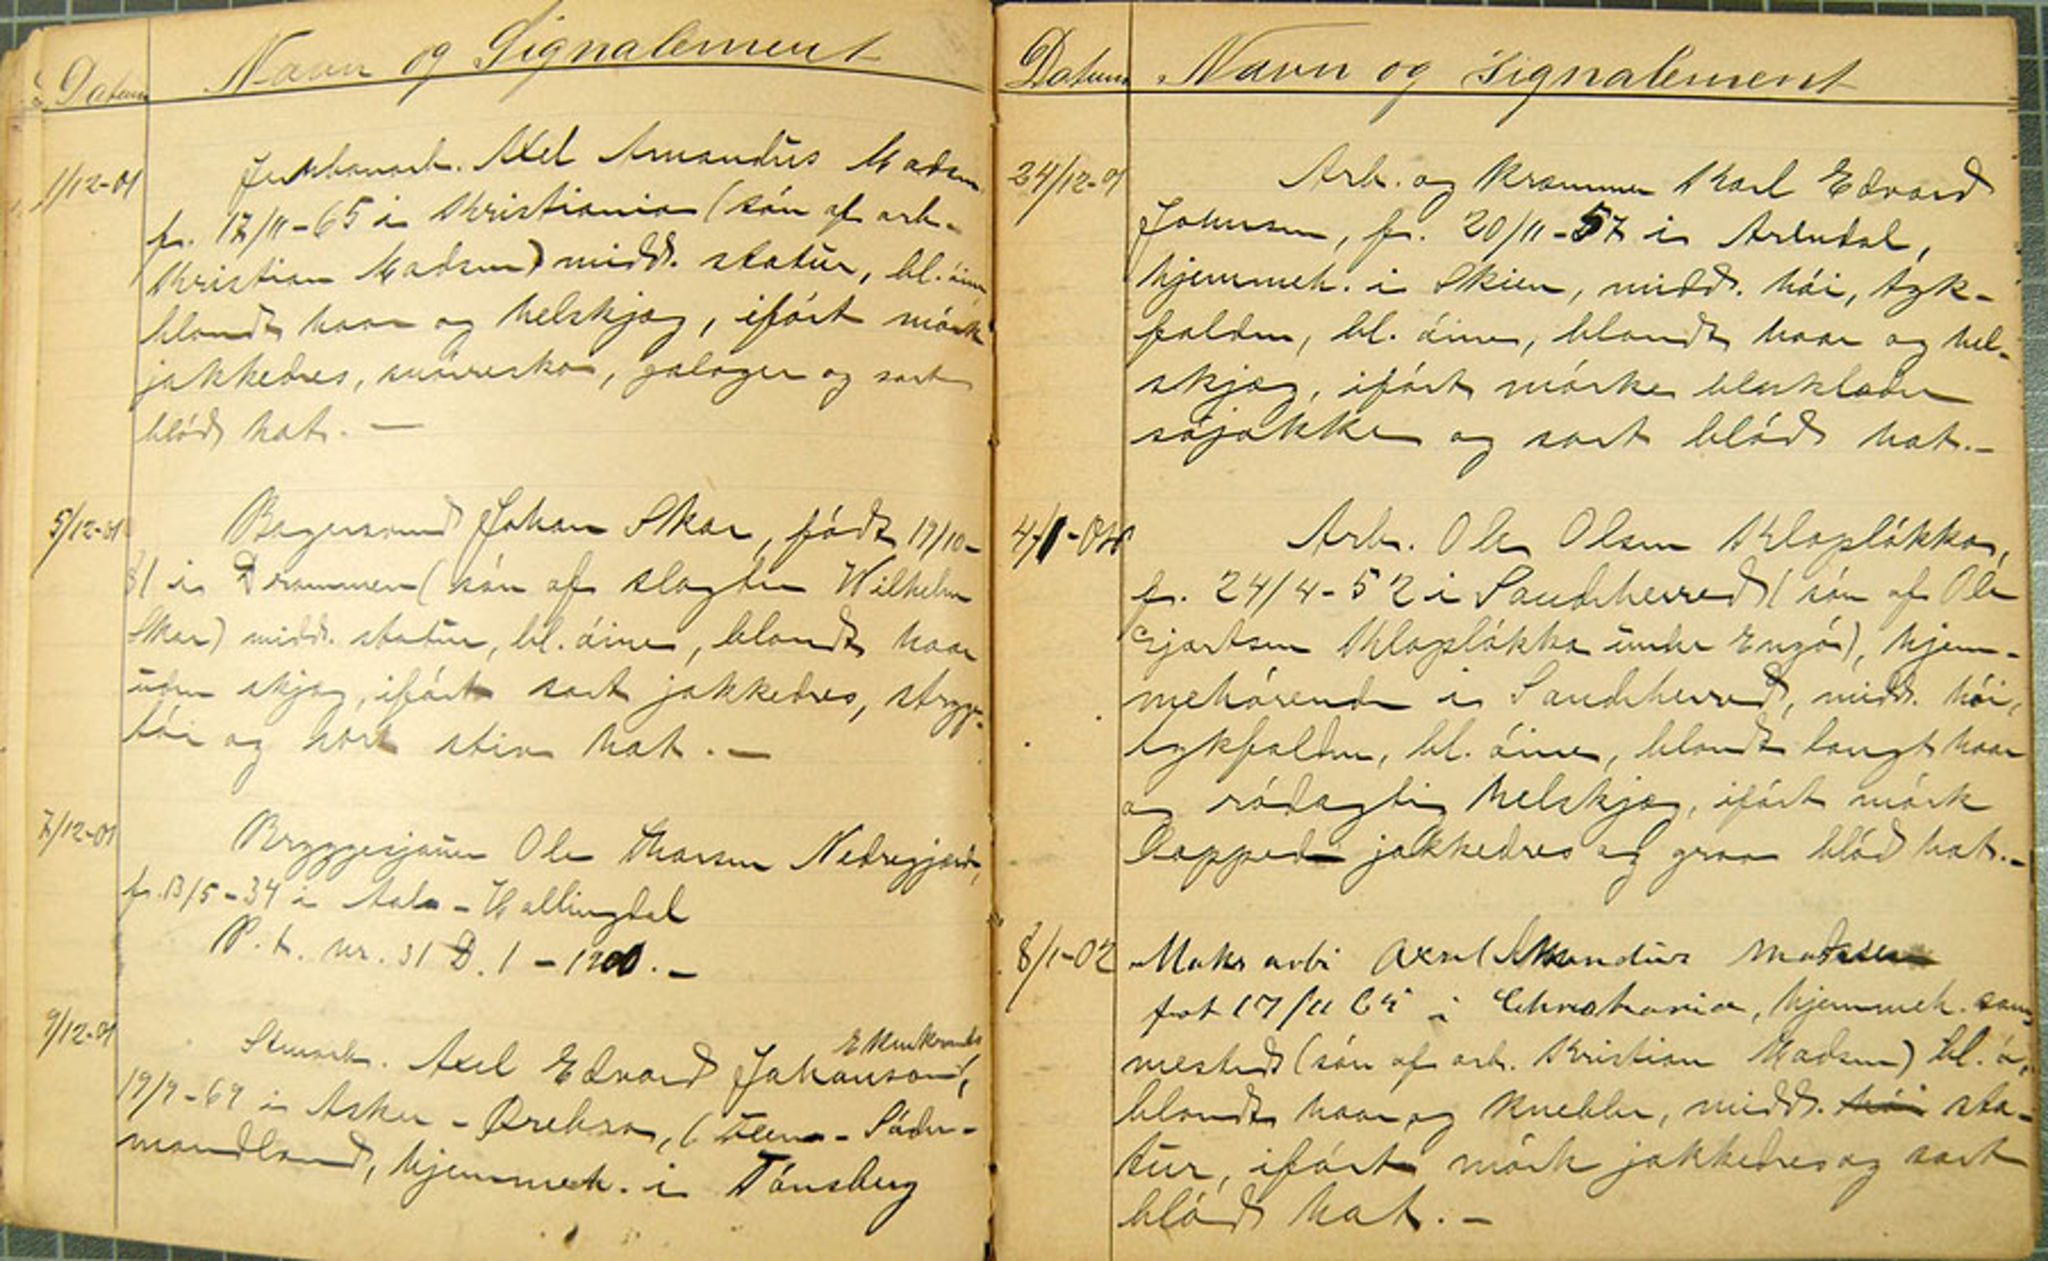 Datum Navn og Signalement
1/12-01 Jernbanearb. Axel Amandus Madsen
f. 17/11-65 i Kristiania (sön af arb.
Kristian Madsen) midd. statur, bl. öine
blondt haar og helskjæg, ifört mörk
jakkedres, snöresko, galoger og sort
blöd hat. —
5/12-01 Bagersvend Johan Skar, födt 19/10-
81 i Drammen (sön af slagter Wilhelm
Skar) midd. statur, bl. öine, blondt haar
uden skjæg, ifört sort jakkedres, stryge-
töi og sort stiv hat. —
7/12-01 Bryggesjauer Ole Larsen Nedregjærde,
f. 13/5-34 i Aal - Hallingdal
P. t. nr. 31 D. 1 - 1900. —
9/12-01 Stenarb. Axel Edvard Johanson,
19/9-69 i Asker - Örebro, ( - Söder-
mandland, hjemmeh. i Tönsberg
Datum Navn og Signalement
24/12-01 Arb. og kræmmer Karl Edvard
Johnsen, f. 20/11-57 i Arendal,
hjemmeh. i Skien, midd. höi, tyk-
falden, bl. öine, blondt haar og hel-
skjæg, ifört mörke benklæder
söjakke og sort blöd hat. —
4/1-02 Arb. Ole Olsen Klopløkka,
f. 24/4-52 i Sandeherred (sön af Ole
Gjertsen Klopløkka under Engö), hjem-
mehörende i Sandeherred, midd. höi,
tykfalden, bl. öine, blondt langt haar
og rödagtig helskjæg, ifört mörk
lappede jakkedres og graa blöd hat. —
8/1-02 Axel Amandus Madsen
föt 17/11 65 i Christiania, hjemmeh. sam-
mesteds (sön af arb. Kristian Madsen) bl. ö.
blondt haar og knebler, midd. höi sta-
tur, ifört mörk jakkedres og sort
blöd hat. —